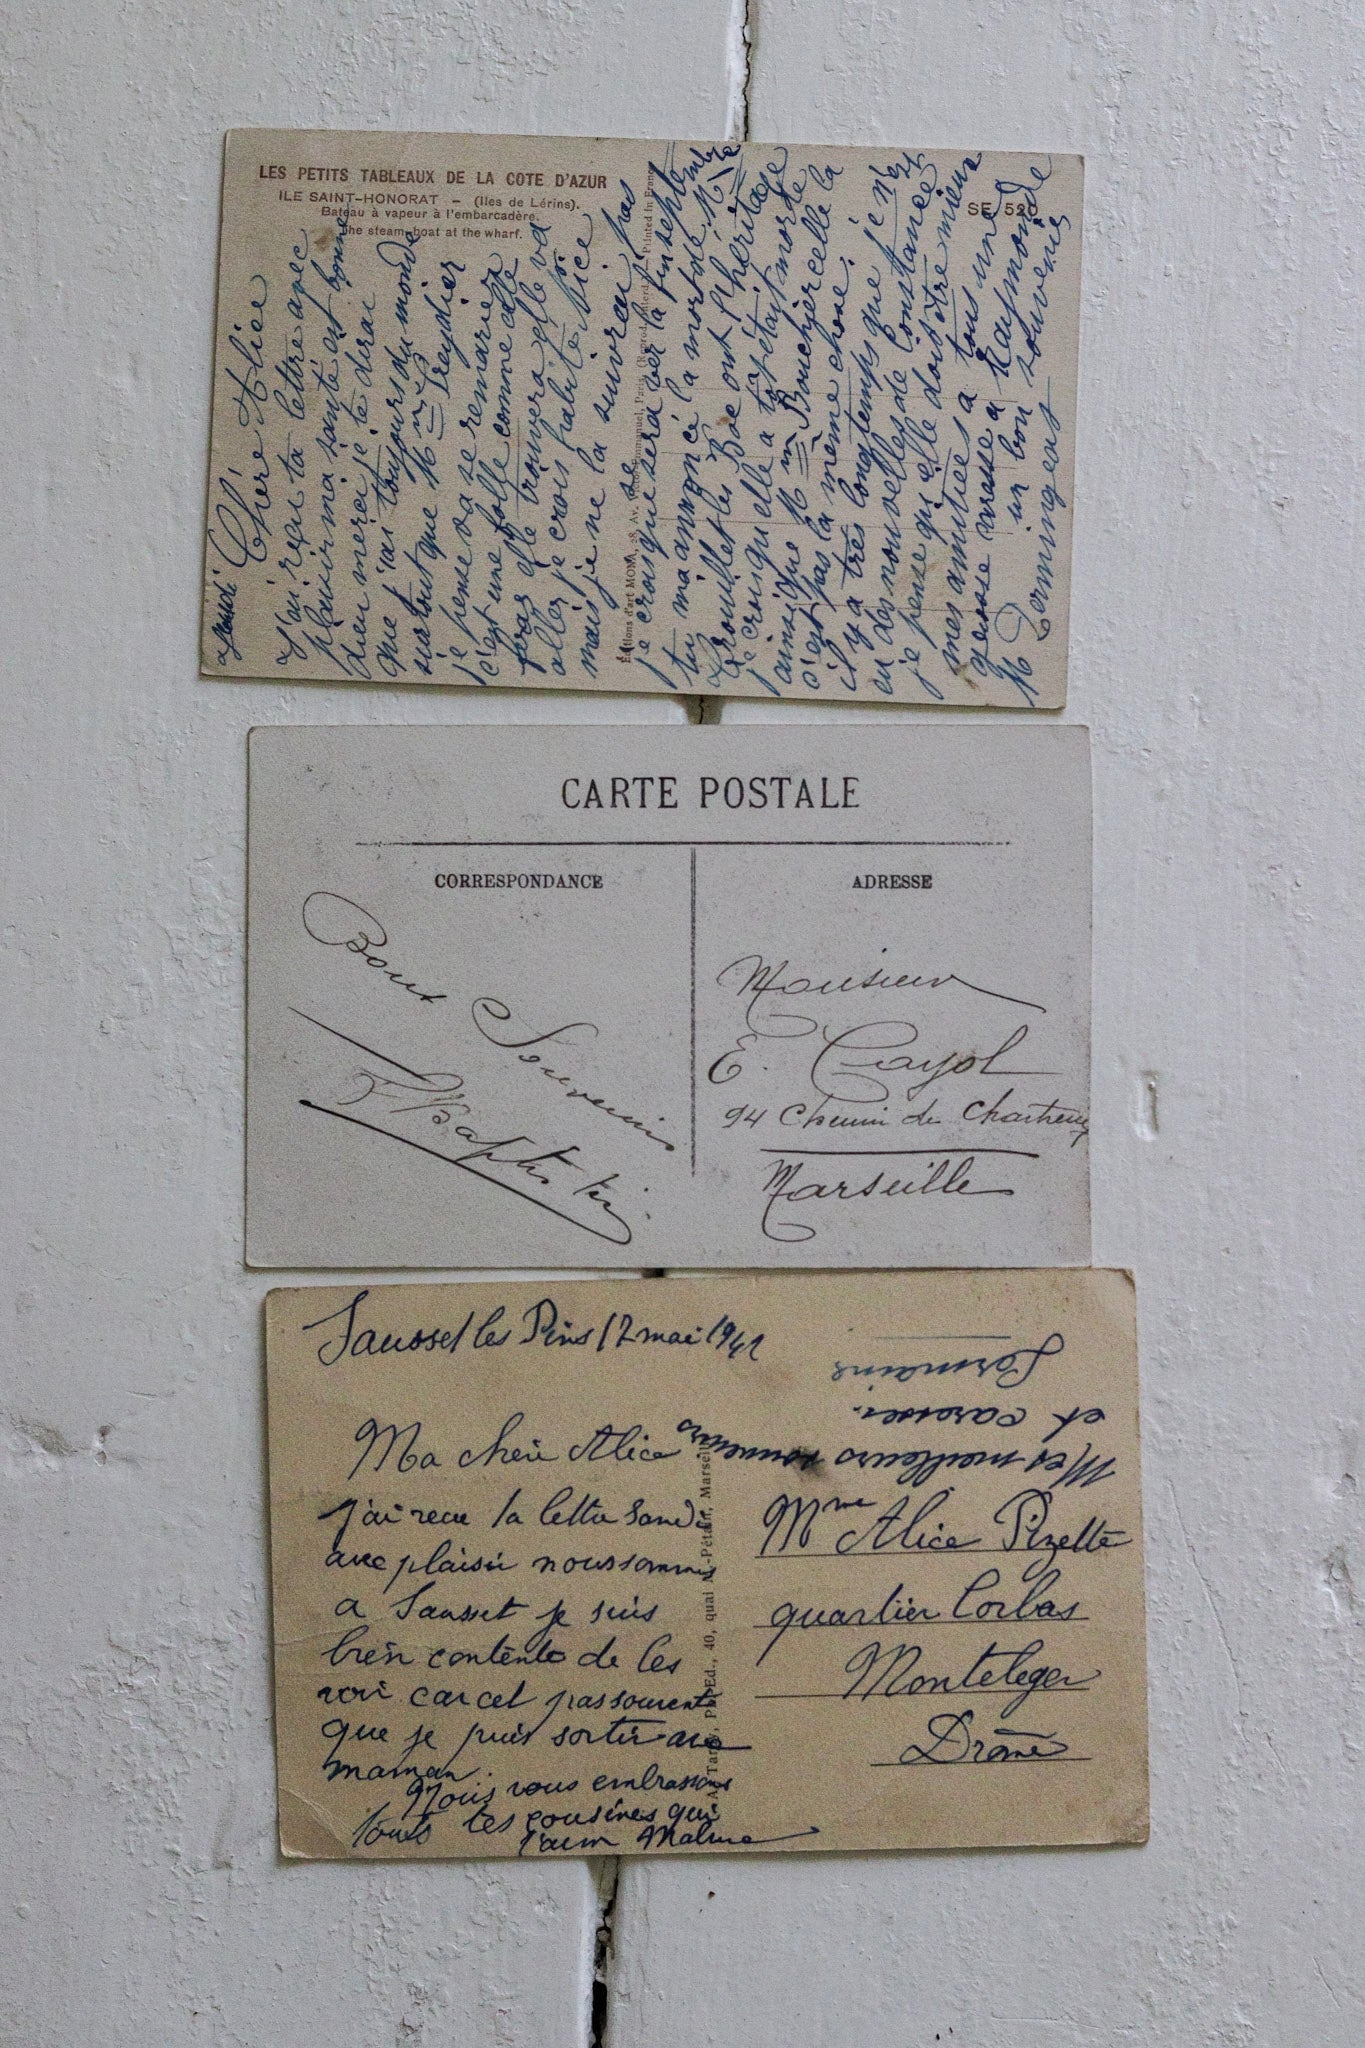 LES PETITS TABLEAUX DE LA COTE D'AZUR
ILE SAINT-HONORAT - (Iles de Lérins).
Bateau à vapeur à l'embarcadère.
The steam-boat at the wharf.
SE 520
Chère Alice
J'ai reçu ta lettre avec
plaisir ma santé est bonne
dieu merci je te dirai
que j'ais toujours du monde
surtout que Mme Freydier
je pense va se remarier
c'est une folle comme elle
feras elle trouvera elle va
aller je crois habité Nice
mais je ne la suivrai pas
je crois que se sera ver la fin septembre
tu m'a annoncé la mort de Mr
Brouillet les Bac ont l'héritage
je crois qu'elle a tot était morte
ainsi que Mme Bouchier celle la
c'est pas la même chose.
il y a très longtemps que je n'ez
eu des nouvelles de Constance
je pense qu'elle doit être mieux
mes amitiées a tous une
grosse caresse a Raymonde
un bon souvenir
M
Editions d'art MONA, 28, Av. Emmanuel, Paris. Printed in France
CARTE POSTALE
CORRESPONDANCE
ADRESSE
Bons Souvenirs
Monsieur
E. Cayol
94 Chemin de Chartreux
Marseille
Sausset les Pins 12 mai 1941
Ma chère Alice
J'ai recu ta lettre Samdi
avec plaisir nous sommes
a Sausset je suis
bien contente de les
voir car cet pas souvente
que je puis sortir avec
maman.
Nous vous embrassons
Tous tes cousines qui
t'aim
Mes meilleurs souvenirs
et caresses.
Germaine
Mme Alice Pizette
quartier Corbas
Monteleger
Drôme
Tardy, Ph.-Ed., 40, quai M.-Pétain, Marseille